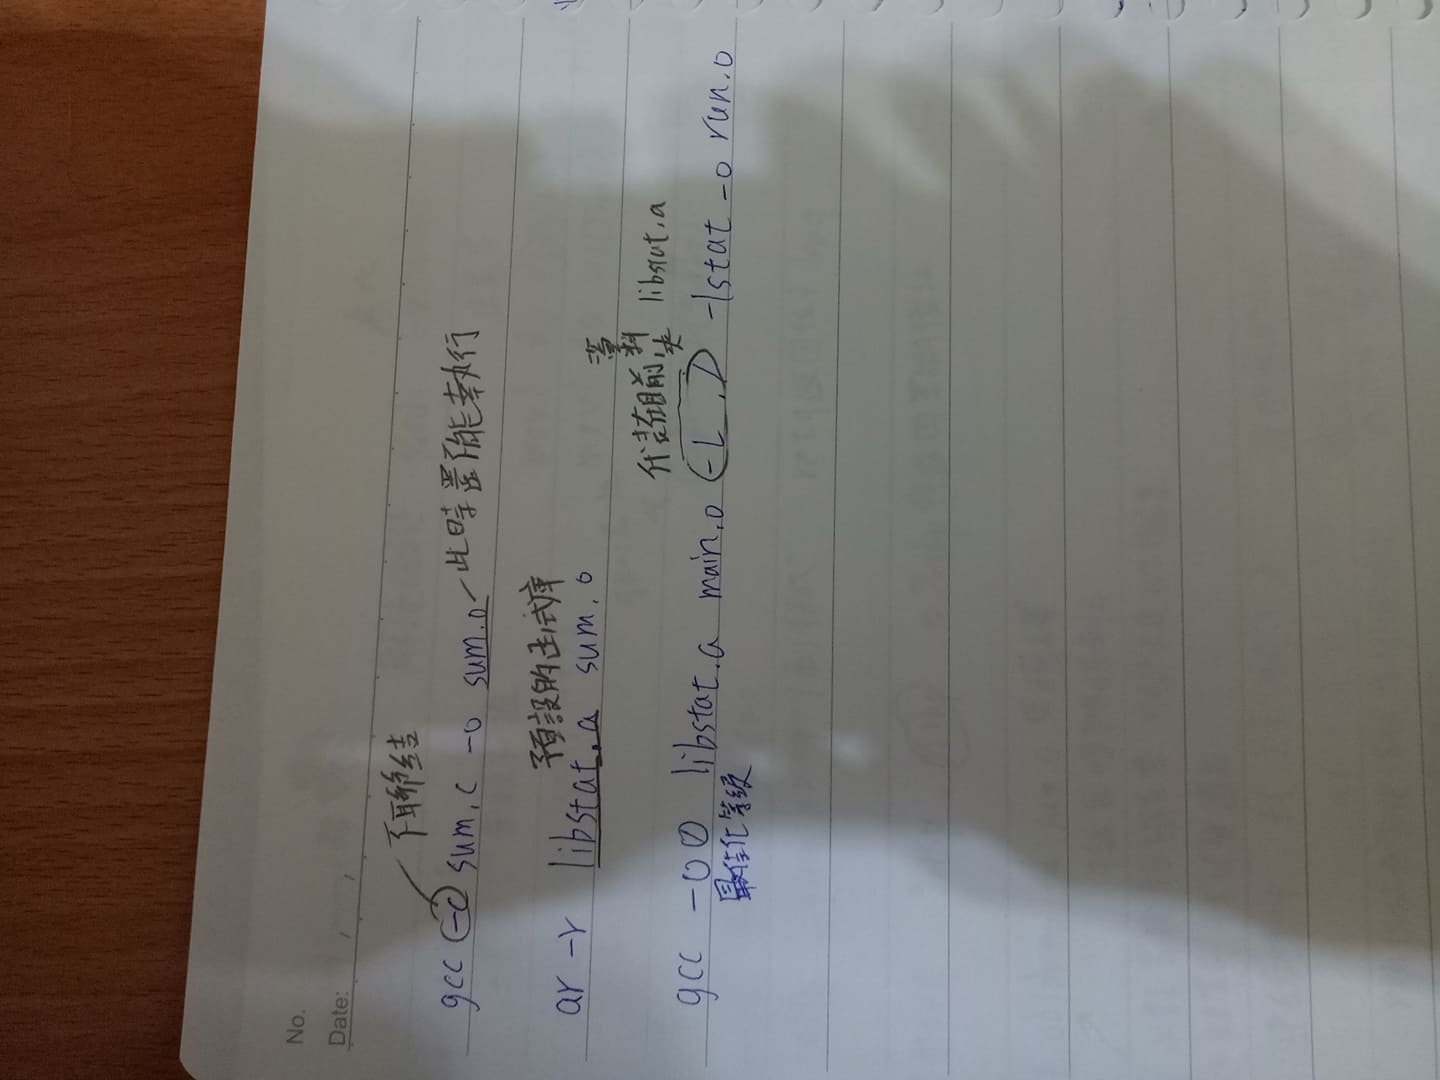 No.
Date:
不聯結
gcc -c sum.c -o sum.o 此時還不能執行
預設的函式庫
ar -r libstat.a sum.o
代表在目前資料夾 libstat.a
gcc -O0 libstat.a main.o -L./ -lstat -o run.o
最佳化等級